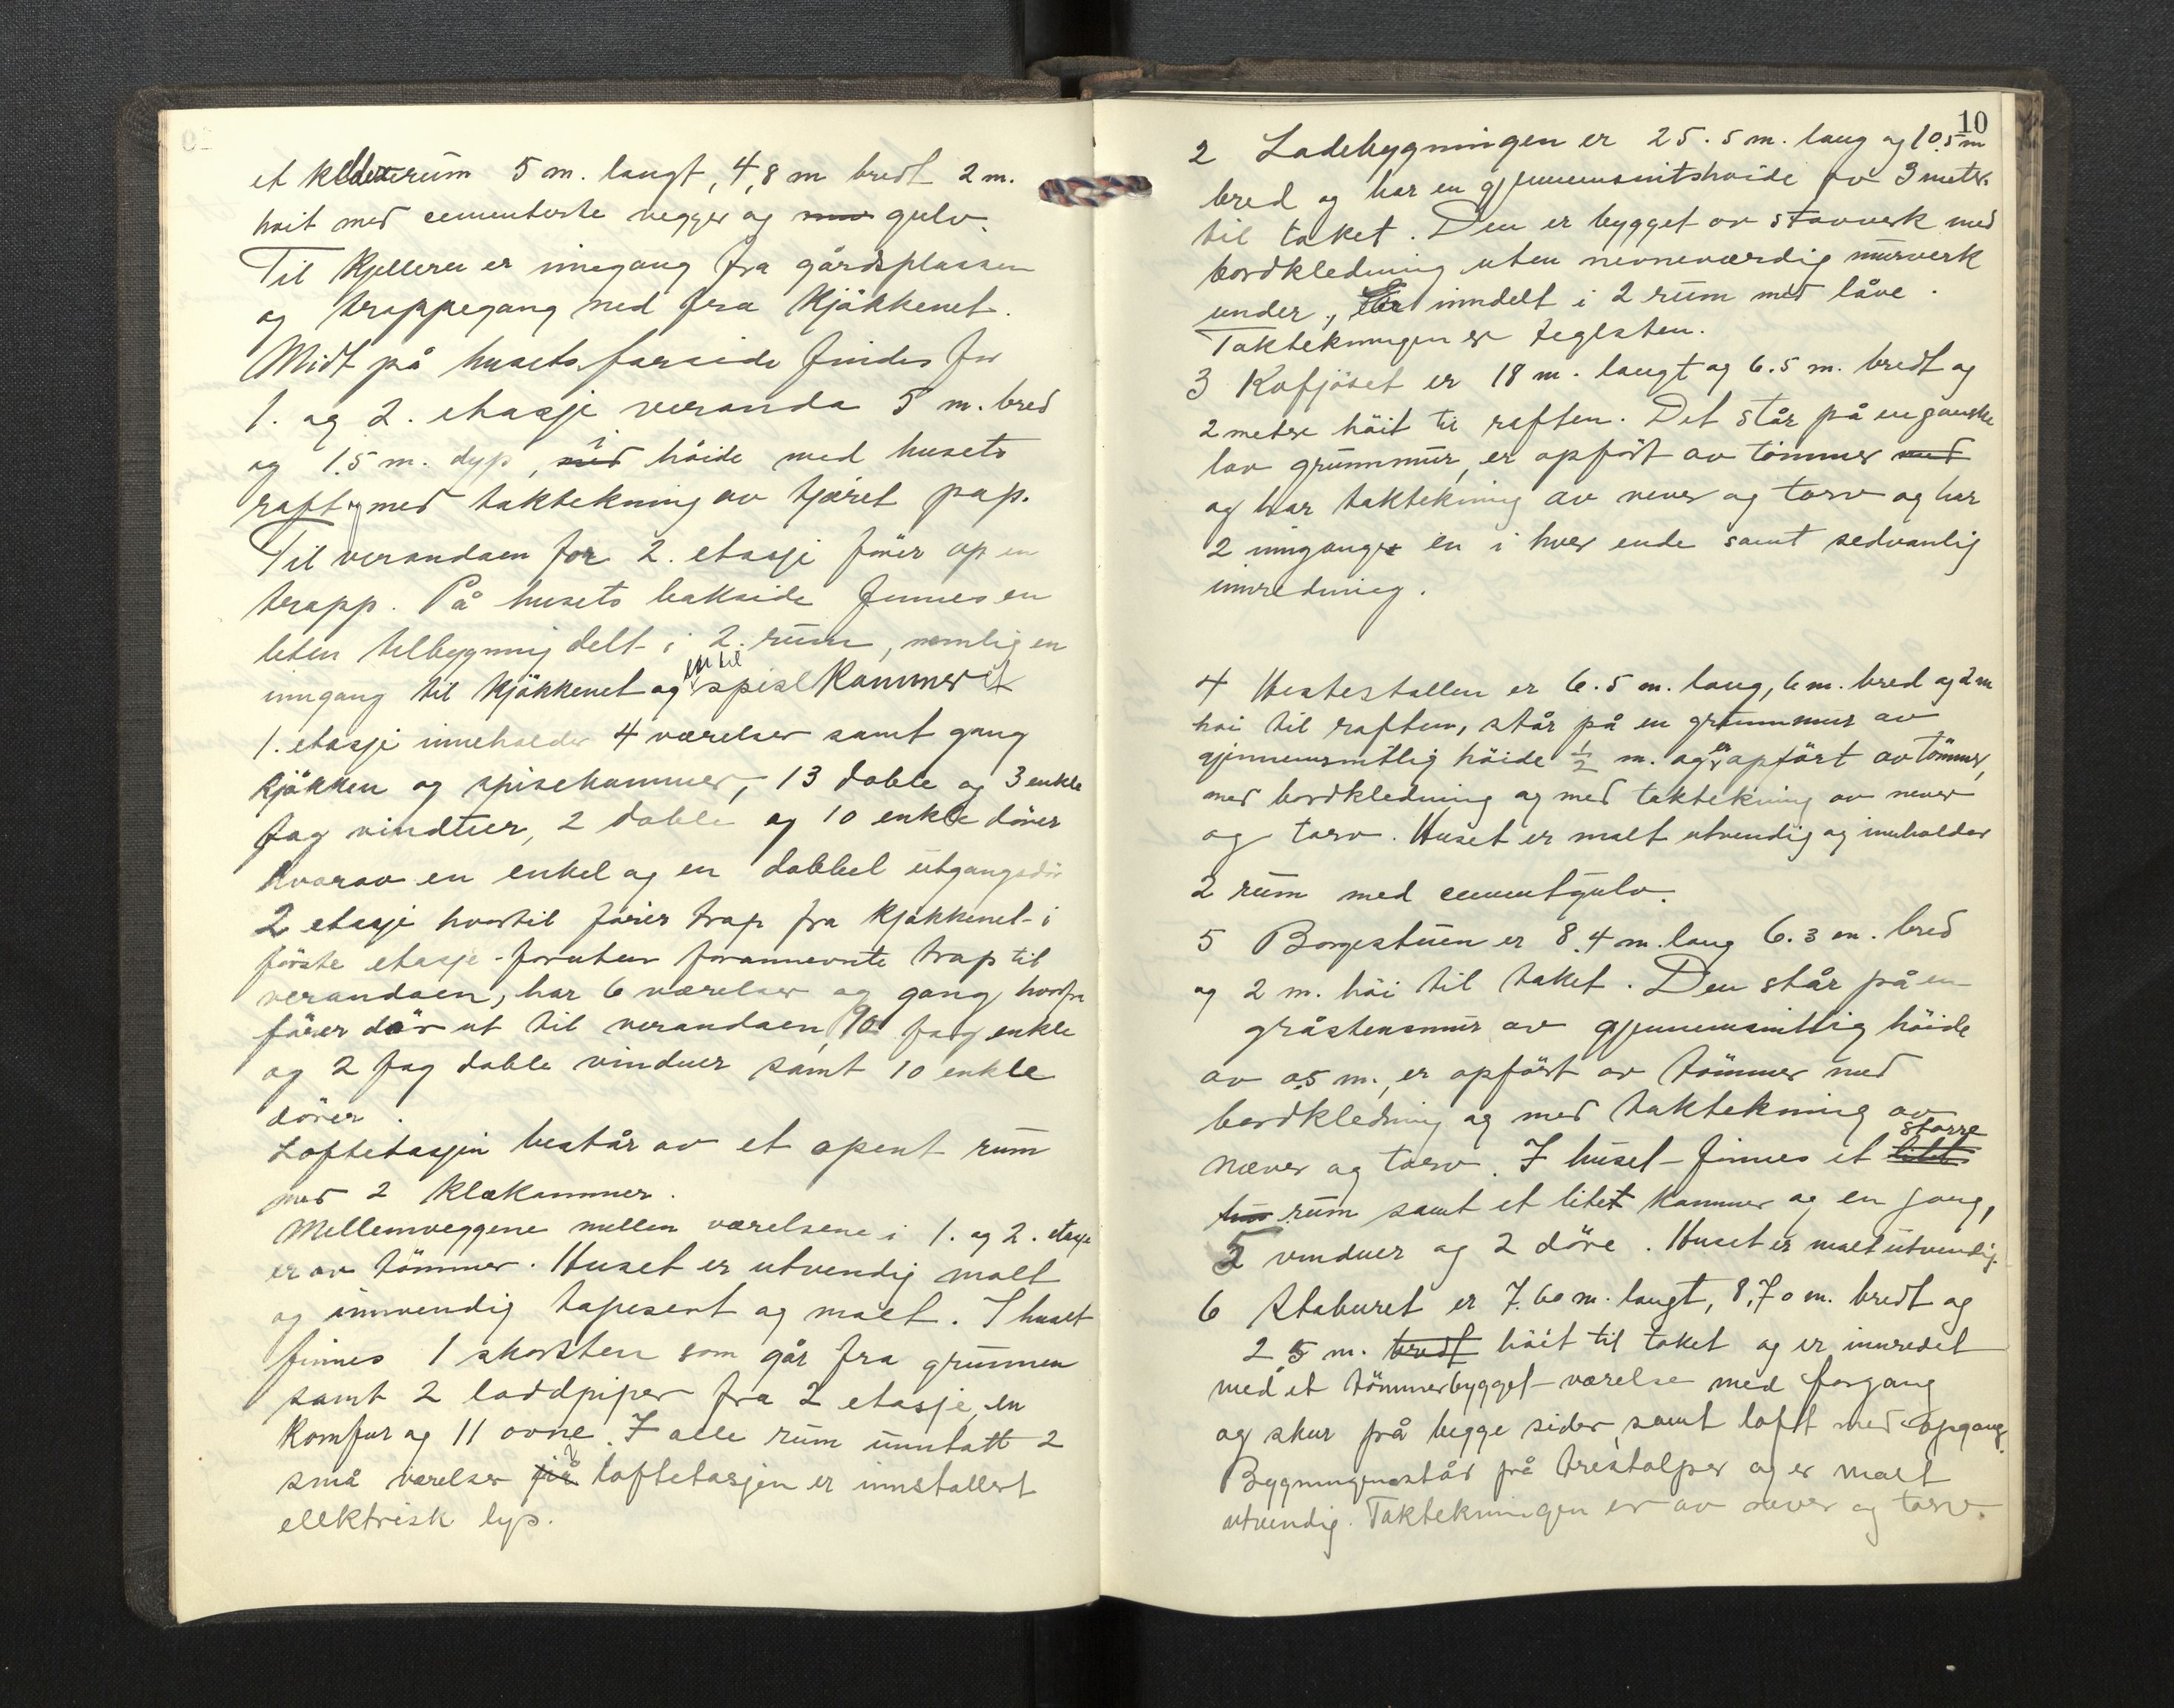 et kjellerrum 5 m. langt, 4,8 m bredt 2 m.
höit med cementerte vegger og gulv.
Til kjelleren er inngang fra gårdsplassen
og trappegang ned fra kjökkenet.
Midt på husets forside findes for
1. og 2. etasje veranda 5 m. bred
og 1.5 m. dyp, i höide med husets
raft og med taktekning av tjæret pap.
Til verandaen for 2. etasje förer op en
trapp. På husets bakside finnes en
liten tilbygning delt i 2. rum, nemlig en
inngang til kjökkenet og en til spiskammeret
1. etasje inneholder 4 værelser samt gang
kjökken og spisekammer, 13 doble og 3 enkle
fag vinduer, 2 doble og 10 enkle dörer
hvorav en enkel og en dobbel utgangsdör
2 etasje hvortil förer trap fra kjökkenet i
förste etasje - foruten forannevnte trap til
verandaen, har 6 værelser og gang hvorfra
förer dör ut til verandaen, fag enkle
og 2 fag doble vinduer samt 10 enkle
dörer.
Loftetasjen består av et åpent rum
med 2 klækammer.
Mellemveggene mellem værelsene i 1. og 2. etasje
er av tömmer. Huset er utvendig malt
og innvendig tapesert og malt. I huset
finnes 1 skorsten som går fra grunnen
samt 2 loddpiper fra 2 etasje, en
komfur og 11 ovne. I alle rum unntatt 2
små værelser i loftetasjen er innstallert
ellektrisk lys.
10
2 Ladebygningen er 25.5 m. lang og 10.5 m
bred og har en gjennemsnitshöide av 3 meter
til taket. Den er bygget av stavverk med
bordkledning uten nevneværdig murverk
under, Er inndelt i 2 rum med låve.
Taktekningen er teglsten.
3 Kufjöset er 18 m. langt og 6.5 m. bredt og
2 metre höit til raften. Det står på en ganske
lav grunnmur, er opfört av tömmer med
og har taktekning av never og torv og har
2 innganger en i hver ende samt sedvanlig
innredning.
4 Hestestallen er 6.5 m. lang, 6 m. bred og 2 m
höi til raften, står på en grunnmur av
gjennemsnitlig höide 1/2 m. og er opfört av tömmer,
med bordkledning og med taktekning av never
og torv. Huset er malt utvendig og inneholder
2 rum med cementgulv.
5 Borgestuen er 8.4 m. lang 6.3 m. bred
og 2 m. höi til taket. Den står på en
gråstensmur av gjennemsnitlig höide
av 0.5 m., er opfört av tömmer med
bordkledning og med taktekning av
næver og torv. I huset finnes et litet större
rum samt et litet kammer og en gang,
5 vinduer og 2 döre. Huset er malt utvendig.
6 Staburet er 7.60 m. langt, 8,70 m. bredt og
2.5 m. bredt höit til taket og er innredet
med et tömmerbygget værelse med forgang
og skur på begge sider, samt loft med opgang.
Bygningen står på trestolper og er malt
utvendig. Taktekningen er av never og torv.